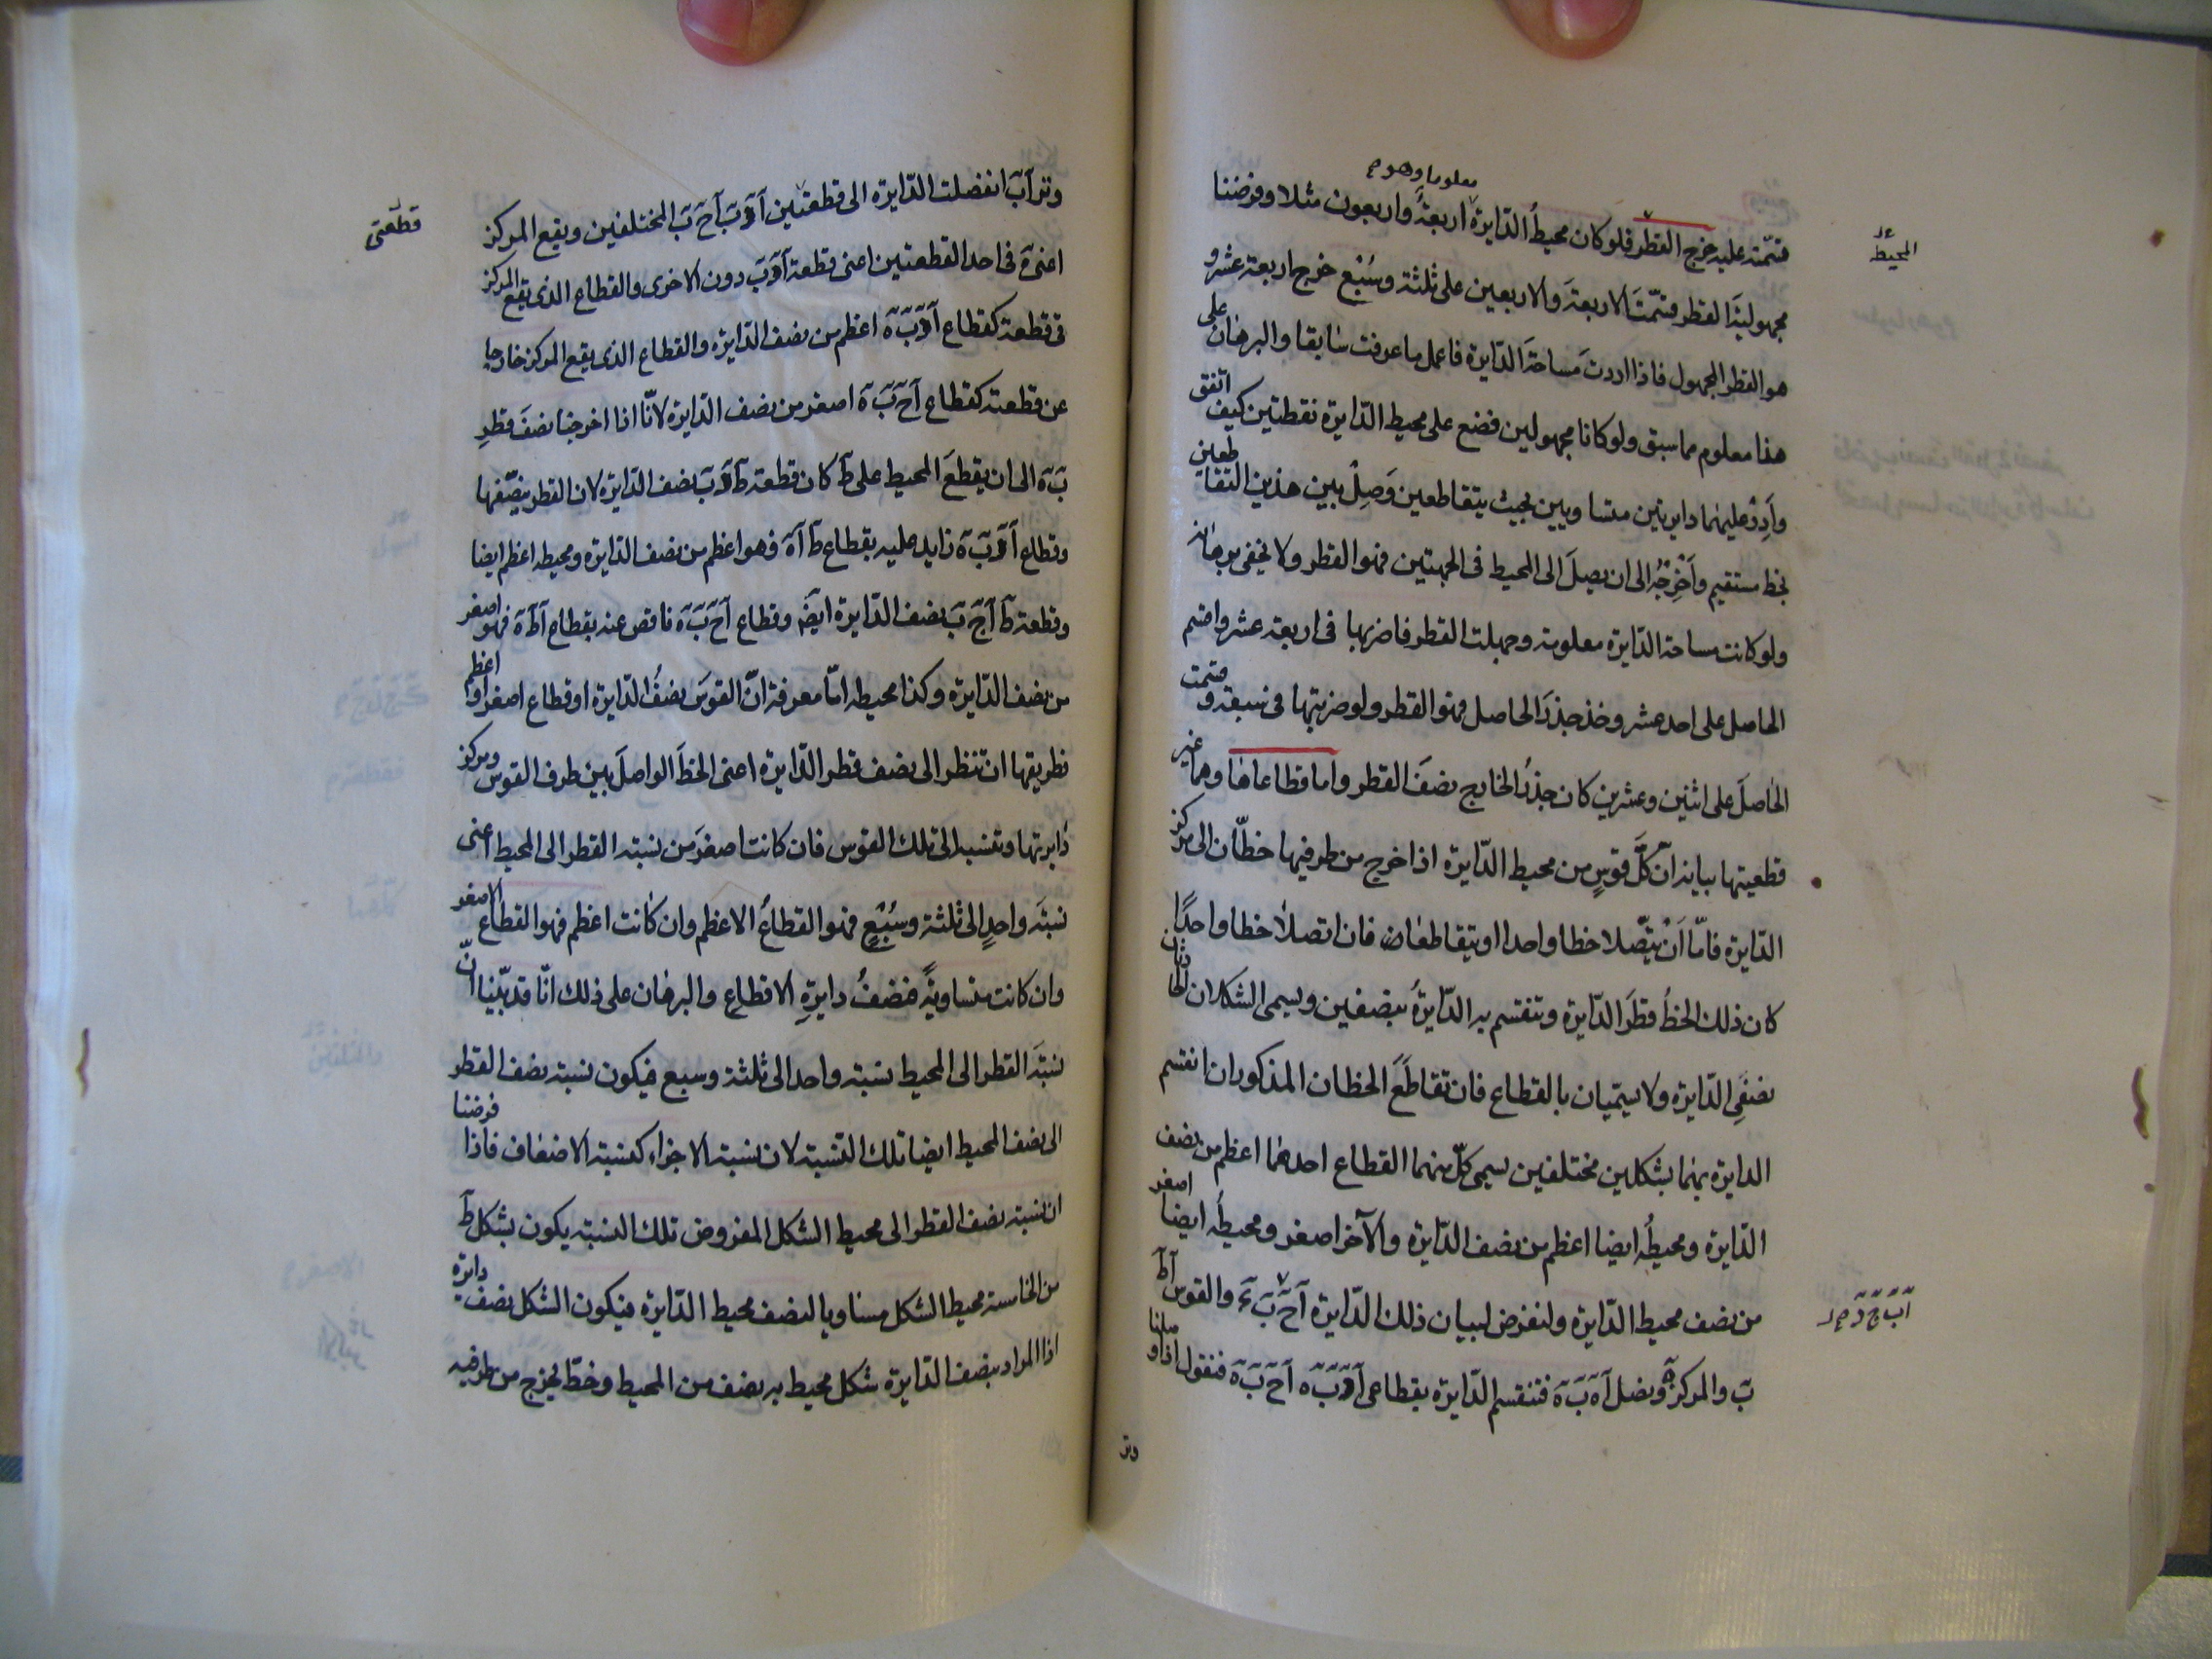 معلوما وهو م
قسمته عليه خرج القطر فلو كان محيطُ الدّايرة اربعةً واربعون مثلا وفرضنا
المحيط
مجهوليةَ القطر قسّمتَ الاربعةَ والاربعين على ثلثة وسُبْع خرج اربعة عشر و
هو القطر المجهول فاذا اردت مَساحةَ الدّايرة فاعمل ما عرفت سابقا والبرهان على
هذا معلوم مما سبق ولو كانا مجهولين فضع على محيط الدّايرة نقطتين كيف اتّفق
وأَدِرْ عليهما دايرتين متساويين بحيث يتقاطعين وَصِلْ بين هذين التقاطعين
بخط مستقيم وأَخْرِجْهُ الى ان يصلَ الى المحيط فى الجهتين فهو القطر ولا يخفى برهانه
ولو كانت مساحة الدّايرة معلومة وجهلت القطر فاضربها فى اربعة عشر واقسم
الحاصل على احد عشر وخذ جذرَ الحاصل فهو القطر ولو ضربتها فى سبعة و قسمت
الحاصلَ على اثنين وعشرين كان جذرُ الخارج نصفَ القطر واما قطاعاها وهما غير
قطعيتها بيانه انّ كلّ قوسٍ من محيط الدّايرة اذا خرج من طرفيها خطّان الى مركز
الدّايرة فامّا أَنْ يتّصلا خطا واحدا او يتقاطعان فان اتصلا خطا واحدًا
كان ذلك الخطُ قطرَ الدّايرة وتنقسم به الدّايرةُ بنصفين ويسمى الشكلان الحادثان
نصفَىِ الدّايرة ولا يسمّيان بالقطاع فان تقاطَعَ الخطان المذكوران انقسم
الدايرة بهما بشكلين مختلفين يسمى كلّ منهما القطاع احدهما اعظم من نصف
الدّايرة ومحيطُه ايضا اعظم من نصف الدّايرة والآخر اصغر ومحيطُه ايضا اصغر
من نصف محيط الدّايرة ولنفرض لبيان ذلك الدّايرة آ حَ بَ ءَ والقوس آطَ
بَ والمركز ه ونصل آ هَ بَ ةَ فتنقسم الدّايرة بقطاعى آ ءَ بَ ه آ حَ بَ ةَ فنقول اذا وصلنا
وتر
وتر آبَ انفصلت الدّايرة الى قطعتين آ ءَ بَ آ حَ بَ المختلفين ويقع المركز
قطعتى
اعنى ةَ فى احد القطعتين اعنى قطعة آ ءَ بَ دون الاخرى والقطاع الذى يقع المركز
فى قطعة كقطاع آ ءَ بَ ةَ اعظم من نصف الدّايرة والقطاع الذى يقع المركز خارجا
عن قطعته كقطاع آ حَ بَ ةَ اصغر من نصف الدّايرة لانّا اذا اخرجنا نصفَ قطرِ
بَ ةَ الى ان يقطعَ المحيط على طَ كان قطعة طَ ءَ بَ نصف الدّايرة لان القطر ينصّفها
وقطاع آ ءَ بَ ةَ زايد عليه بقطاع طَ آ ةَ فهو اعظم من نصف الدّايرة ومحيطه اعظم ايضا
وقطعة طَ آ جَ بَ نصف الدّايرة ايضَ وقطاع آ حَ بَ ةَ ناقص عنه بقطاع آ طَ ةَ فهو اصغر
من نصف الدّايرة وكذا محيطه امّا معرفة انّ القوسَ نصفُ الدّايرة او قطاع اصغر او اعظم
فطريقها ان تنظر الى نصف قطر الدّايرة اعنى الخطَ الواصلَ بين طرف القوس ومركز
دايرتها وتنسبه الى تلك القوس فان كانت اصغرَ من نسبة القطر الى المحيط اعنى
نسبَةَ واحدٍ الى ثلثة وسُبْعٍ فهو القطاعُ الاعظم وان كانت اعظم فهو القطاع الاصغر
وان كانت متساويةً فنصفُ دايرةِ الاقطاع والبرهان على ذلك انّا قد بيّنا انّ
نسبَةَ القطر الى المحيط نسبة واحد الى ثلثة وسبع فيكون نسبة نصف القطر
الى نصف المحيط ايضا تلك النّسبة لان نسبة الاجزاء كنسبة الاضعاف فاذا فرضنا
ان نسبة نصف القطر الى محيط الشكل المفروض تلك النسبة يكون بشكل طَ
من الخامسة محيط الشكل مساويا لنصف محيط الدّايرة فيكون الشكل نصف دايرة
اذ المراد بنصف الدّايرة شكل محيط به نصف من المحيط وخطّ يخرج من طرفيه